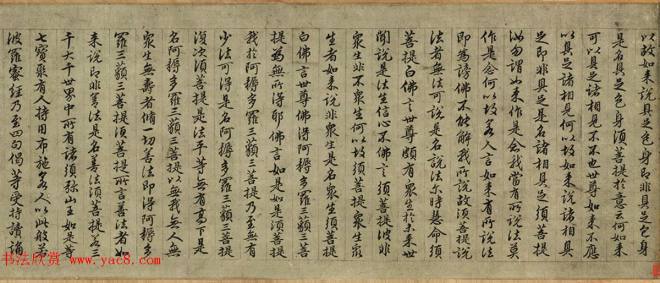 以故如来说具足色身即非具足色身
是名具足色身须菩提於意云何如来
可以具足诸相見不不也世尊如来不應
以具足诸相見何以故如来说诸相具
足即非具足是名诸相具足须菩提
汝勿謂如来作是念我當有所说法莫
作是念何以故若人言如来有所说法
即為謗佛不能解我所说故须菩提说
法者無法可说是名说法尔時慧命须
菩提白佛言世尊頗有衆生於未来世
聞说是法生信心不佛言须菩提彼非
衆生非不衆生何以故须菩提衆生衆
生者如来说非衆生是名衆生须菩提
白佛言世尊佛得阿耨多羅三藐三菩
提為無所得耶佛言如是如是须菩提
我於阿耨多羅三藐三菩提乃至無有
少法可得是名阿耨多羅三藐三菩提
復次须菩提是法平等無有高下是
名阿耨多羅三藐三菩提以無我無人無
衆生無壽者修一切善法即得阿耨多
羅三藐三菩提须菩提所言善法者如
来说即非善法是名善法须菩提若三
千大千世界中所有诸须弥山王如是等
七寶聚有人持用布施若人以此般若
波羅蜜經乃至四句偈等受持讀誦
书法欣赏
www.yac8.com